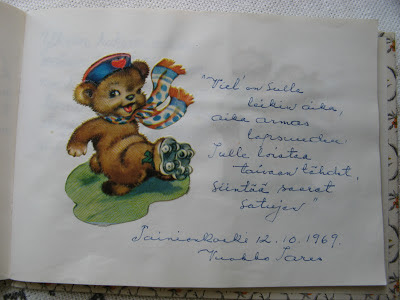 "Viel' on Sulle
leikin aika,
aika armas
lapsuuden.
Sulle loistaa
taivaan tähdet,
siintää saaret
satujen"
Tainionkoski 12.10.1969.
Vuokko Sares